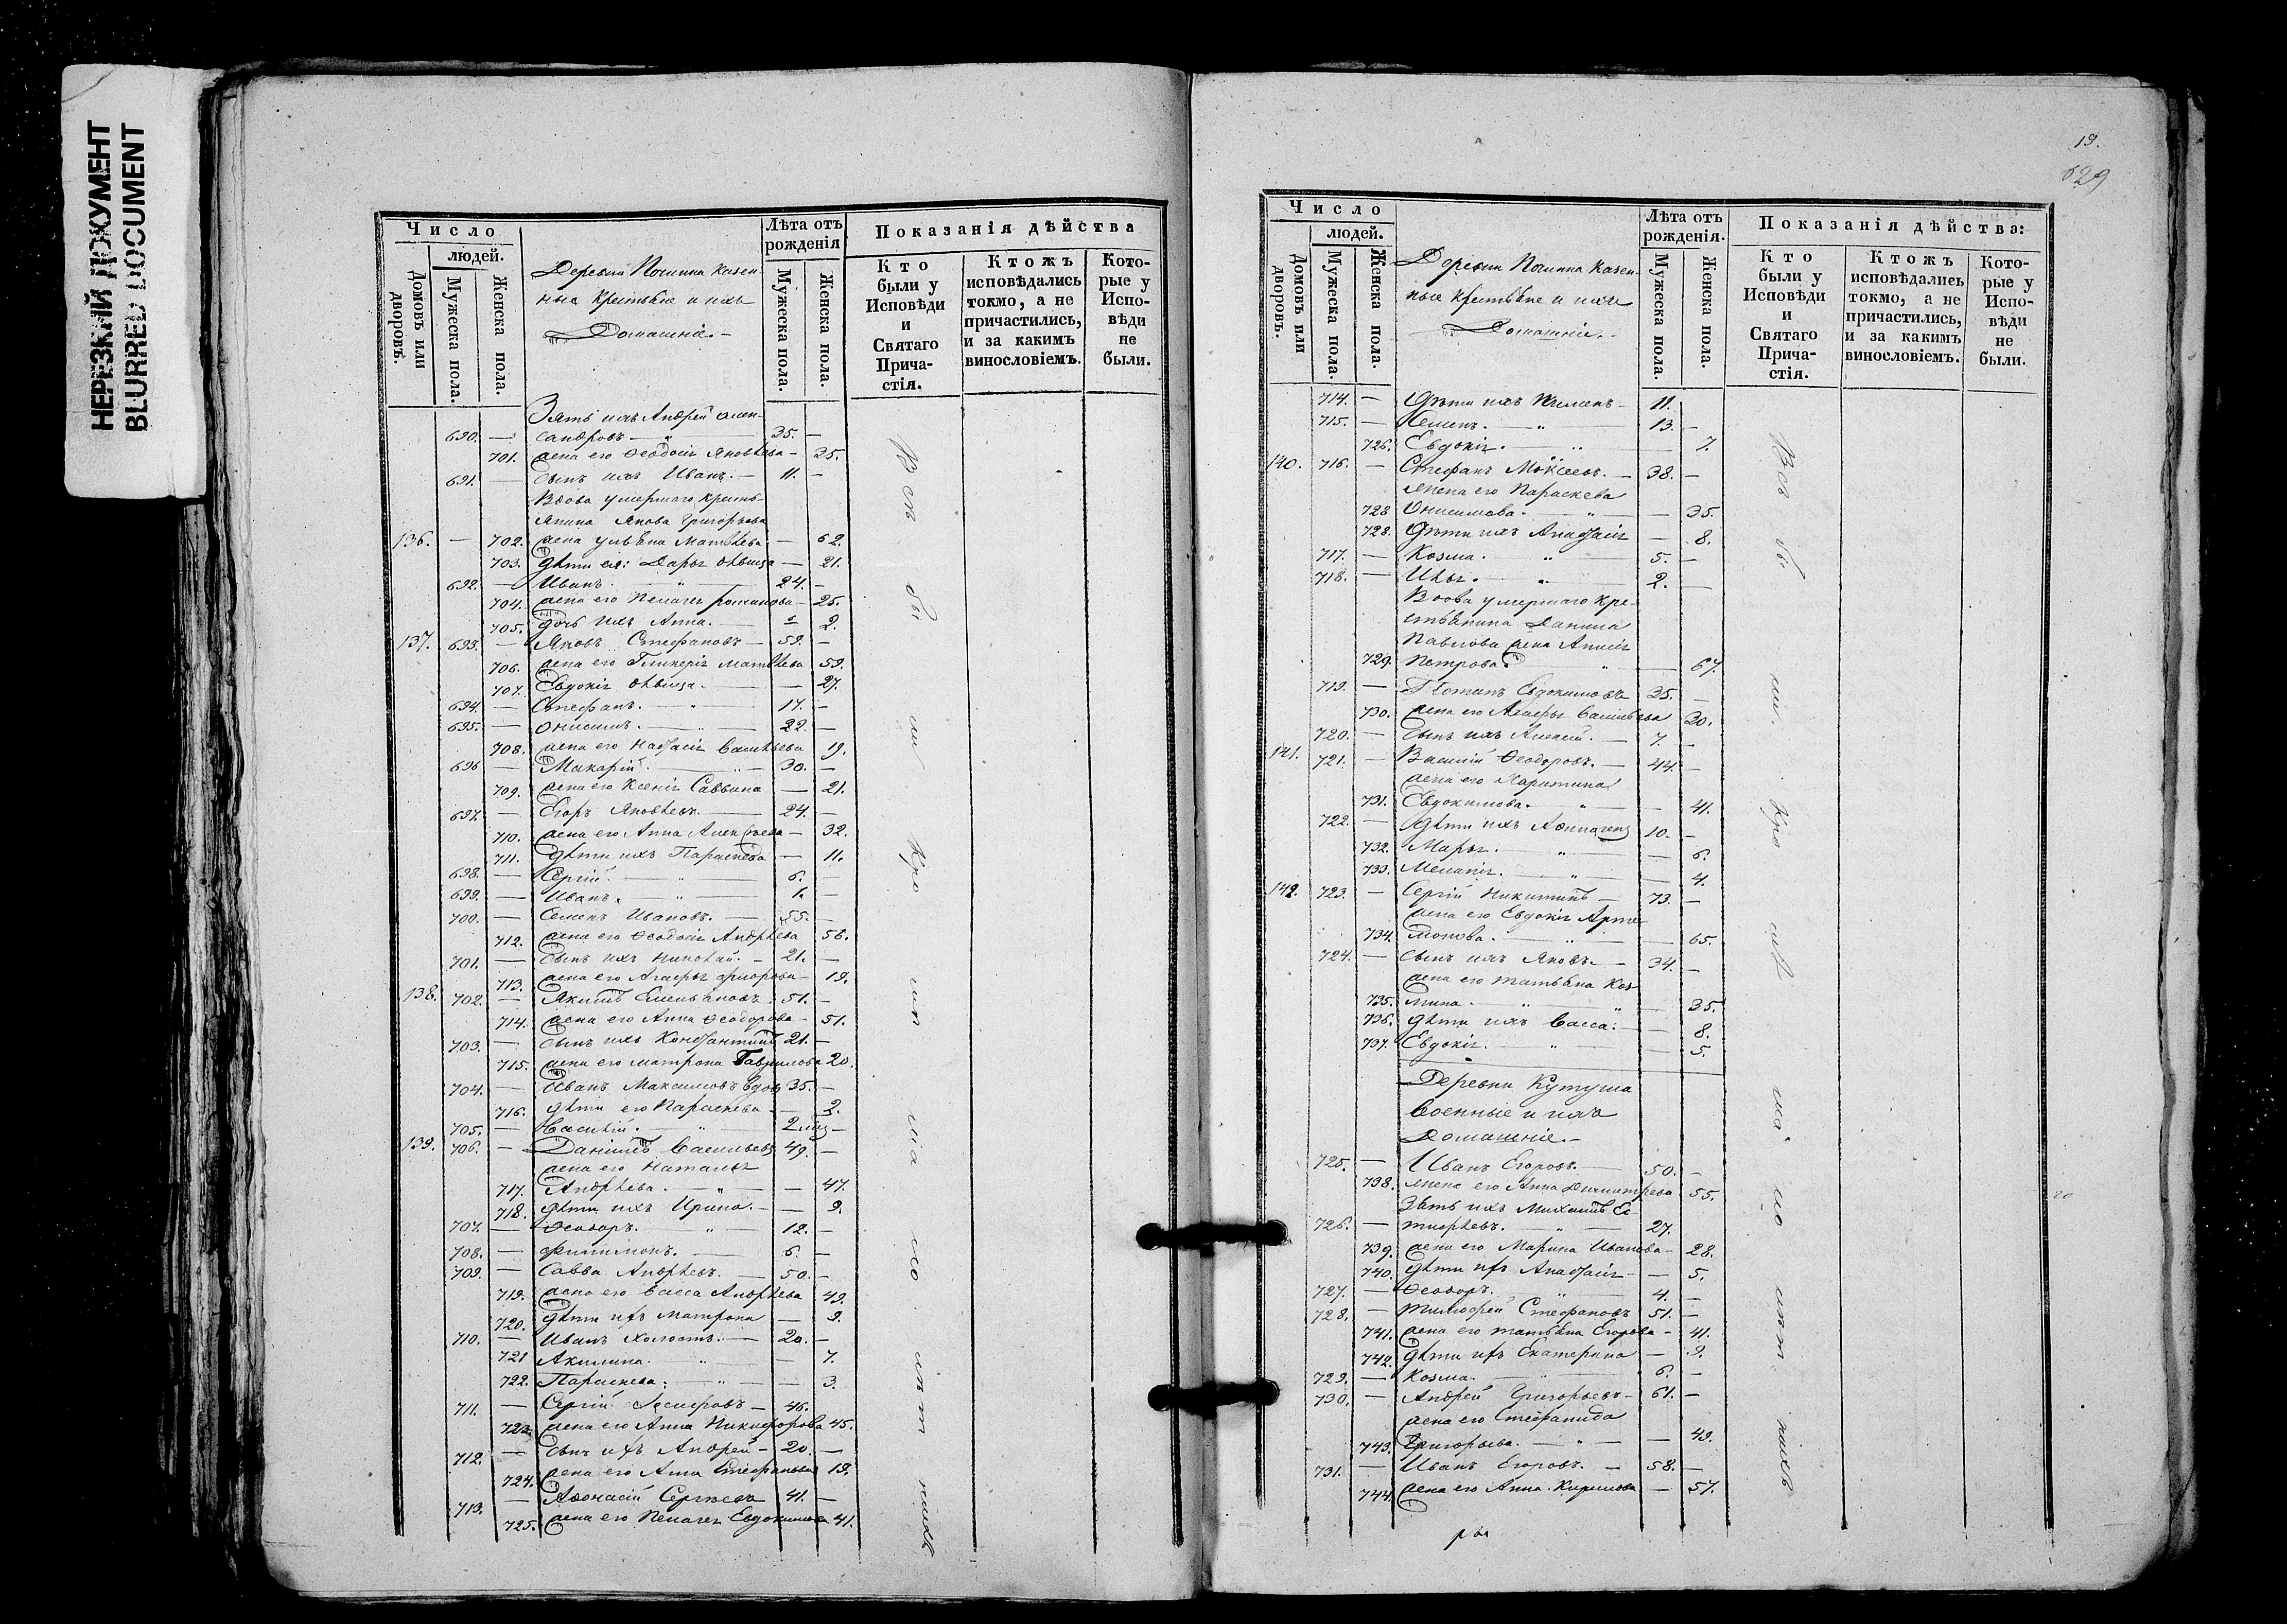 НЕРЕЗКИЙ ДОКУМЕНТ
BLURRED DOCUMENT
Число
людей.
Домовъ или дворовъ.
Мужеска пола.
Женска пола.
Деревни казен-
ные крестьяне и ихъ
Домашніе.-
Лѣта отъ рожденія
Мужеска пола.
Женска пола.
Показанія дѣйства
Кто были у Исповѣди и Святаго Прича-стія.
Ктожъ исповѣдались токмо, а не причастились, и за какимъ винословіемъ.
Кото-рые у Испо-вѣди не были.
Зять ихъ Андрей Алек-
690. — сандровъ — 35. —
701. жена его Ѳеодосія Яковлева — 35.
691. — Сынъ ихъ Иванъ. — 11. —
Вдова умершаго кресть-
янина Якова Григорьева
136. — 702. жена Ульяна Матвѣева — 62.
703. Дѣти ея: Дарья дѣвица — 21.
692. — Иванъ. — 24. —
704. жена его Пелагея Романова — 25.
705. дочь ихъ Анна. — 2.
137. 693. — Яковъ Стефановъ — 59. —
706. жена его Гликерія Матвѣева 59.
707. Евдокія дѣвица. — 27.
694. — Стефанъ. — 17. —
695. — Онисимъ. — 22. —
708. жена его Настасія Васильева 19.
696 — Макарій — 30. —
709. жена его Ксенія Саввина — 21.
697. — Егоръ Яковлевъ. — 24. —
710. жена его Анна Алексѣева — 32.
711. дѣти ихъ Параскева — 11.
698. — Сергій. — 6. —
699. — Иванъ. — 1. —
700. — Семенъ Ивановъ. — 55. —
712. жена его Ѳеодосія Андрѣева 56.
701. — Сынъ ихъ Николай. — 21. —
713. жена его Агафья Флорова — 19.
138. 702. — Якимъ Емельяновъ 51. —
714. жена его Анна Ѳеодорова — 51.
703. — Сынъ ихъ Константинъ 21. —
715. жена его Матрона Гаврилова 20.
704. — Иванъ Максимовъ вдовъ 35. —
716. дѣти его Параскева — 2.
705. — Василій. — 2
139. 706. — Даніилъ Васильевъ 49. —
жена его Наталья
717. Андрѣева. — 47.
718. дѣти ихъ Ирина. — 9.
707. — Ѳеодоръ. — 12. —
708. — Филимонъ. — 6. —
709. — Савва Андрѣевъ. — 50. —
719. жена его Васса Андрѣева 49.
720. дѣти ихъ Матрона — 9.
710. — Иванъ холостъ. — 20. —
721 Акилина. — 7.
722. Параскева. — 3.
711. — Сергій — 46.
723. жена его Анна Никифорова 45.
712. — сынъ ихъ Андрей — 20. —
724. жена его Анна Стефанова 19.
713. — Аѳонасій Сергѣевъ 41. —
725. жена его Пелагея Евдокимова 41.
19.
629
Число
людей.
Домовъ или дворовъ.
Мужеска пола.
Женска пола.
Деревни казен-
ные крестьяне и ихъ
Домашніе.-
Лѣта отъ рожденія.
Мужеска пола.
Женска пола.
Показанія дѣйства:
Кто были у Исповѣди и Святаго Прича-стія.
Ктожъ исповѣдались токмо, а не причастились, и за какимъ винословіемъ.
Кото-рые у Испо-вѣди не были.
714. — Дѣти ихъ — 11.
715. — Семенъ. — 13. —
726. Евдокія. — 7.
140. 716. — Стефанъ Моѵсеевъ. — 38. —
жена его Параскева
728 Онисимова. — 35.
728. Дѣти ихъ Анастасія — 8.
717. — Козма. — 5. —
718. — Илья. — 2. —
Вдова умершаго кре-
стьянина Данила
Павлова жена
729. Петрова. — 67.
719. — Потапъ Евдокимовъ 35. —
730. жена его Агафья Васильева 30.
720. — Сынъ ихъ Алексей. — 7. —
141. 721. — Василій Ѳеодоровъ. — 44. —
жена его Харитина
731. Евдокимова. — 41.
722. — дѣти ихъ 10. —
732. Марья. — 6.
733. Меланія. — 4.
142. 723. — Сергій Никитинъ — 73. —
жена его Евдокія Арте-
734. монова. — 65.
724. — сынъ ихъ Яковъ. — 34. —
жена его Татьяна Коз-
735. мина. — 35.
736. дѣти ихъ Васса. — 8.
737. Евдокія. — 5.
Деревни Кутуша
Военные и ихъ
Домашніе.-
725. — Иванъ Егоровъ. — 50. —
738. жена его Анна Димитрева 55.
Зять ихъ Михаилъ Ев-
726. — 27.
739. жена его Марина Иванова — 28.
740. дѣти ихъ Анастасія — 5.
727. — Ѳеодоръ. — 4. —
728. — Тимофей Стефановъ 51. —
741. жена его Татьяна Егорова — 41.
742. дѣти ихъ Екатерина — 9.
729. — Козма. — 6. —
730. — Андрей Григорьевъ — 61. —
жена его Стефанида
743. Григорьева. — 49.
731. — Иванъ Егоровъ. — 58. —
744. жена его Анна Кирилова — 57.